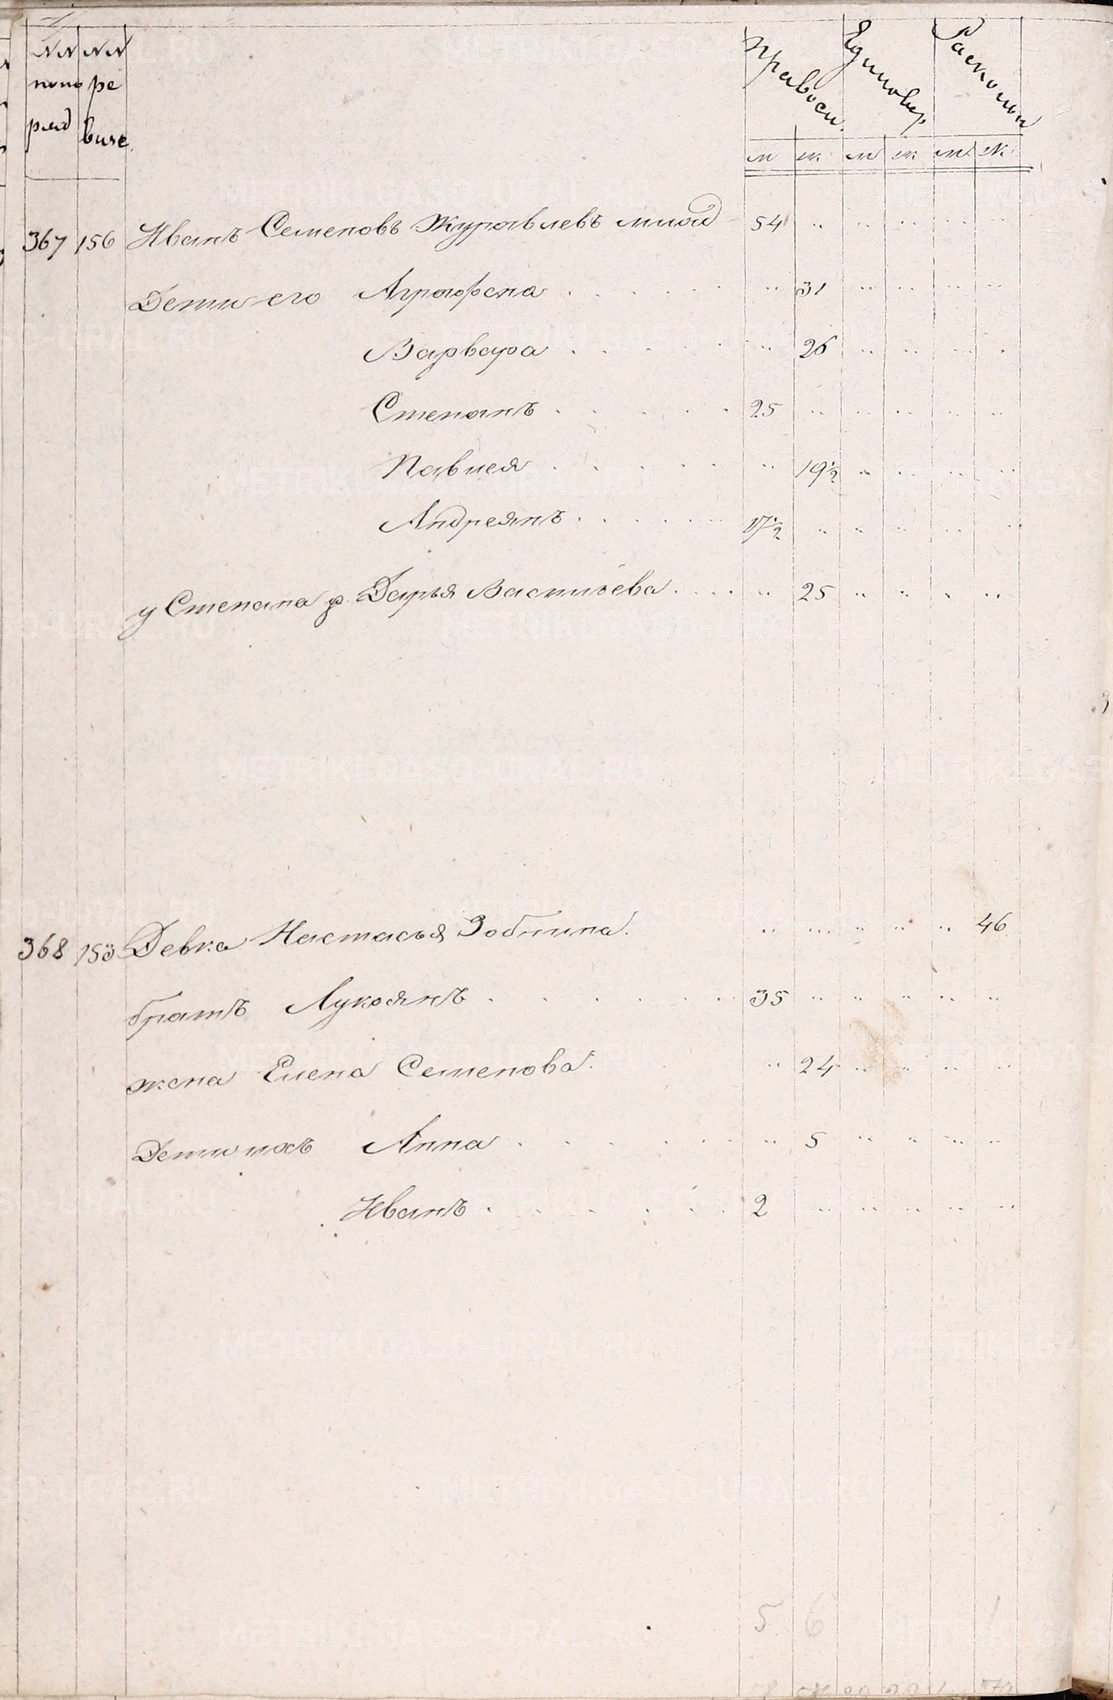 NN NN
попо ре
ряд визс
Правосл. Единовер Расколы
м ж м ж м ж
367 156 Иванъ Семеновъ Журавлевъ млад 54
Дети его Аграфена 31
Варвара 26
Степанъ 25
Павлея 19½
Андреянъ 17½
у Степана ж. Дарья Васильева 25
368 153 Девка Настасья Зобнина 46
братъ Лукоянъ 35
жена Елена Семенова 24
Дети ихъ Анна 5
Иванъ 2
5 6 1